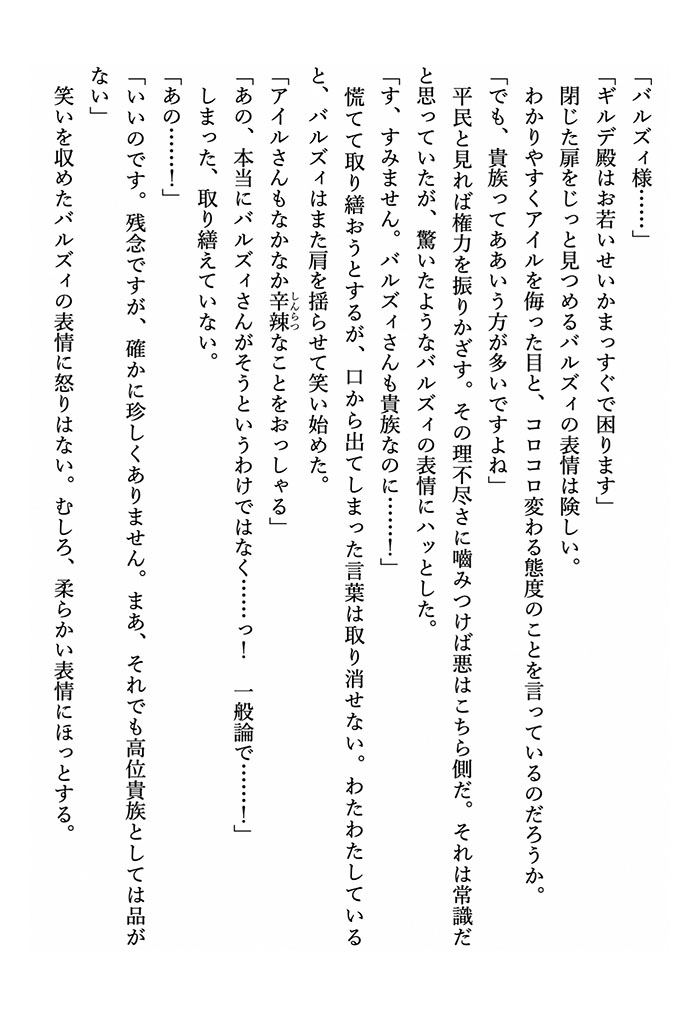 「バルズィ様……」
「ギルデ殿はお若いせいかまっすぐで困ります」
閉じた扉をじっと見つめるバルズィの表情は険しい。
わかりやすくアイルを侮った目と、コロコロ変わる態度のことを言っているのだろうか。
「でも、貴族ってああいう方が多いですよね」
平民と見れば権力を振りかざす。その理不尽さに嚙みつけば悪はこちら側だ。それは常識だ
と思っていたが、驚いたようなバルズィの表情にハッとした。
「す、すみません。バルズィさんも貴族なのに……！」
慌てて取り繕おうとするが、口から出てしまった言葉は取り消せない。わたわたしている
と、バルズィはまた肩を揺らせて笑い始めた。
「アイルさんもなかなか辛辣しんらつなことをおっしゃる」
「あの、本当にバルズィさんがそうというわけではなく……っ！　一般論で……！」
しまった、取り繕えていない。
「あの……！」
「いいのです。残念ですが、確かに珍しくありません。まあ、それでも高位貴族としては品が
ない」
笑いを収めたバルズィの表情に怒りはない。むしろ、柔らかい表情にほっとする。